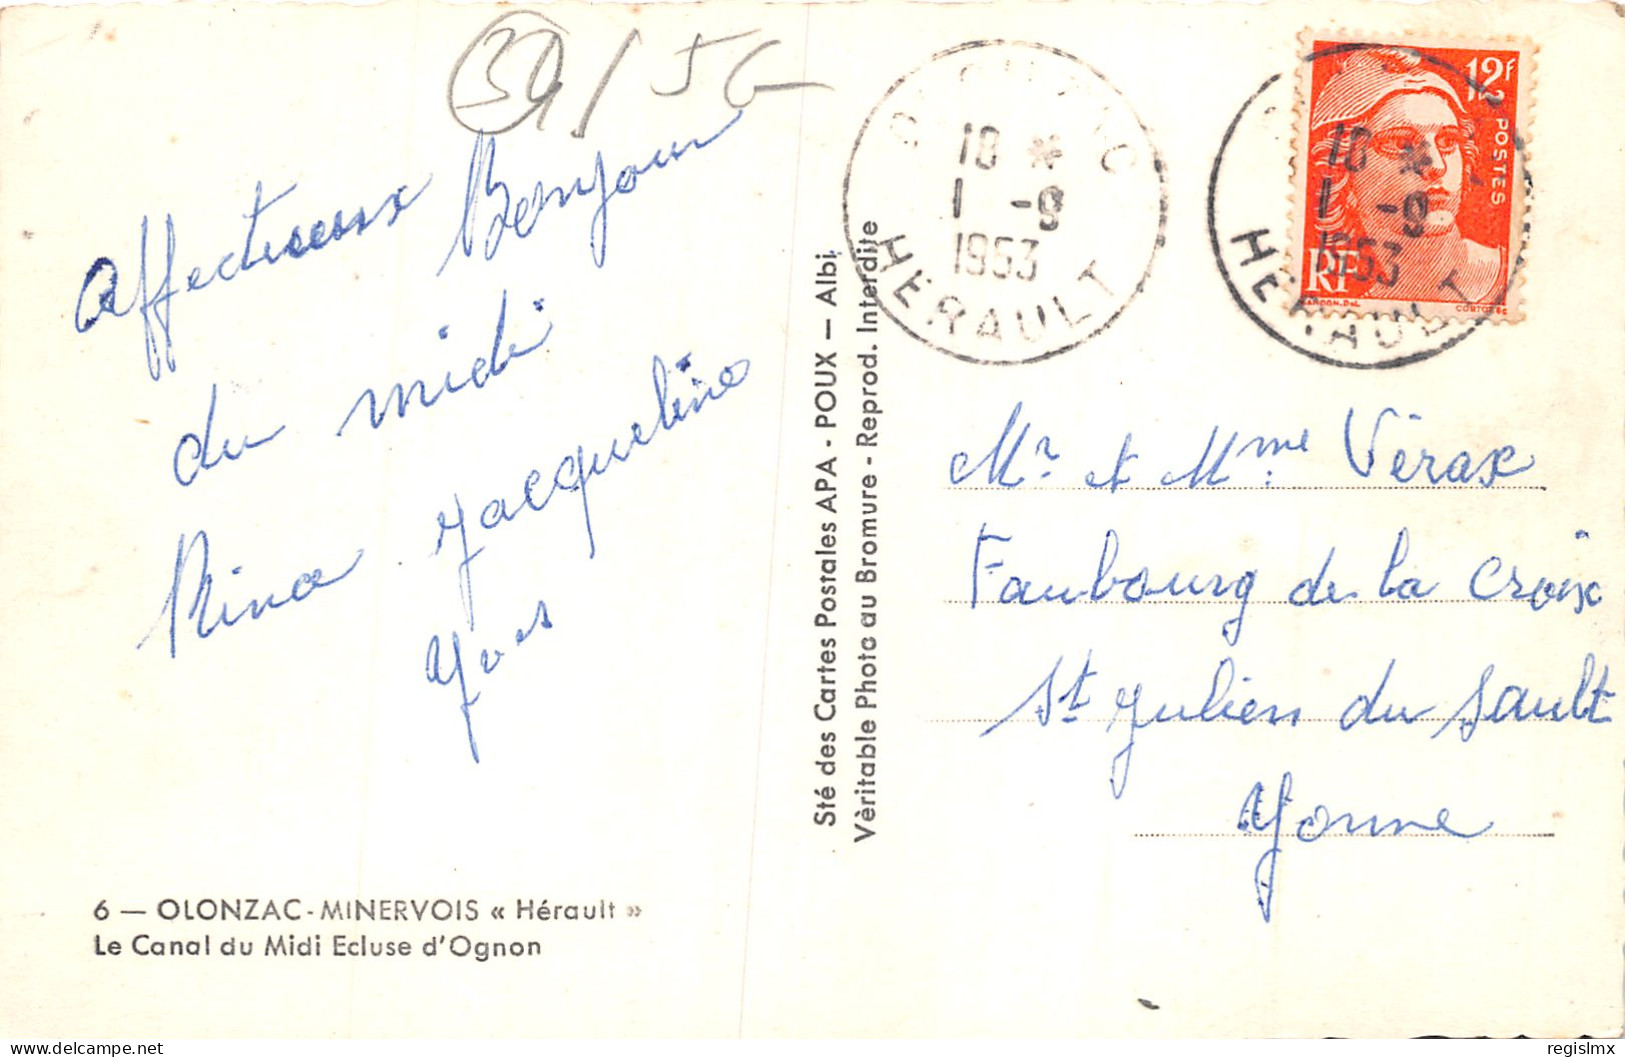 34/56
Affectueux Bonjour
du midi
Nina Jacqueline
Yves
6 — OLONZAC-MINERVOIS « Hérault »
Le Canal du Midi Ecluse d'Ognon
Sté des Cartes Postales APA - POUX — Albi
Vèritable Photo au Bromure - Reprod. Interdite
10 *
1 -9
1953
HERAULT
10 *
1 -9
1953
HERAULT
12F
POSTES
RF
Mr et Mme Vérax
Faubourg de la Croix
St Julien du Sault
Yonne
delcampe.net
regislmx